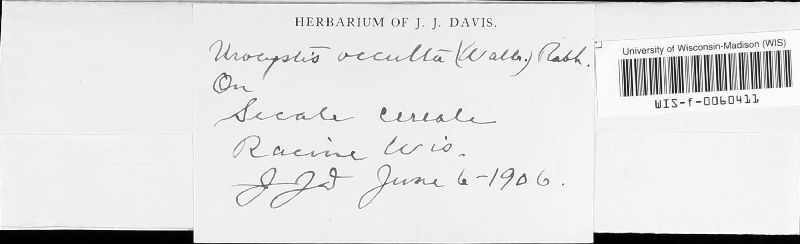 HERBARIUM OF J. J. DAVIS.
Urocystis occulta (Wallr.) Rabh.
On
Secale cereale
Racine Wis.
JJD June 6-1906.
University of Wisconsin-Madison (WIS)
WIS-f-0060411